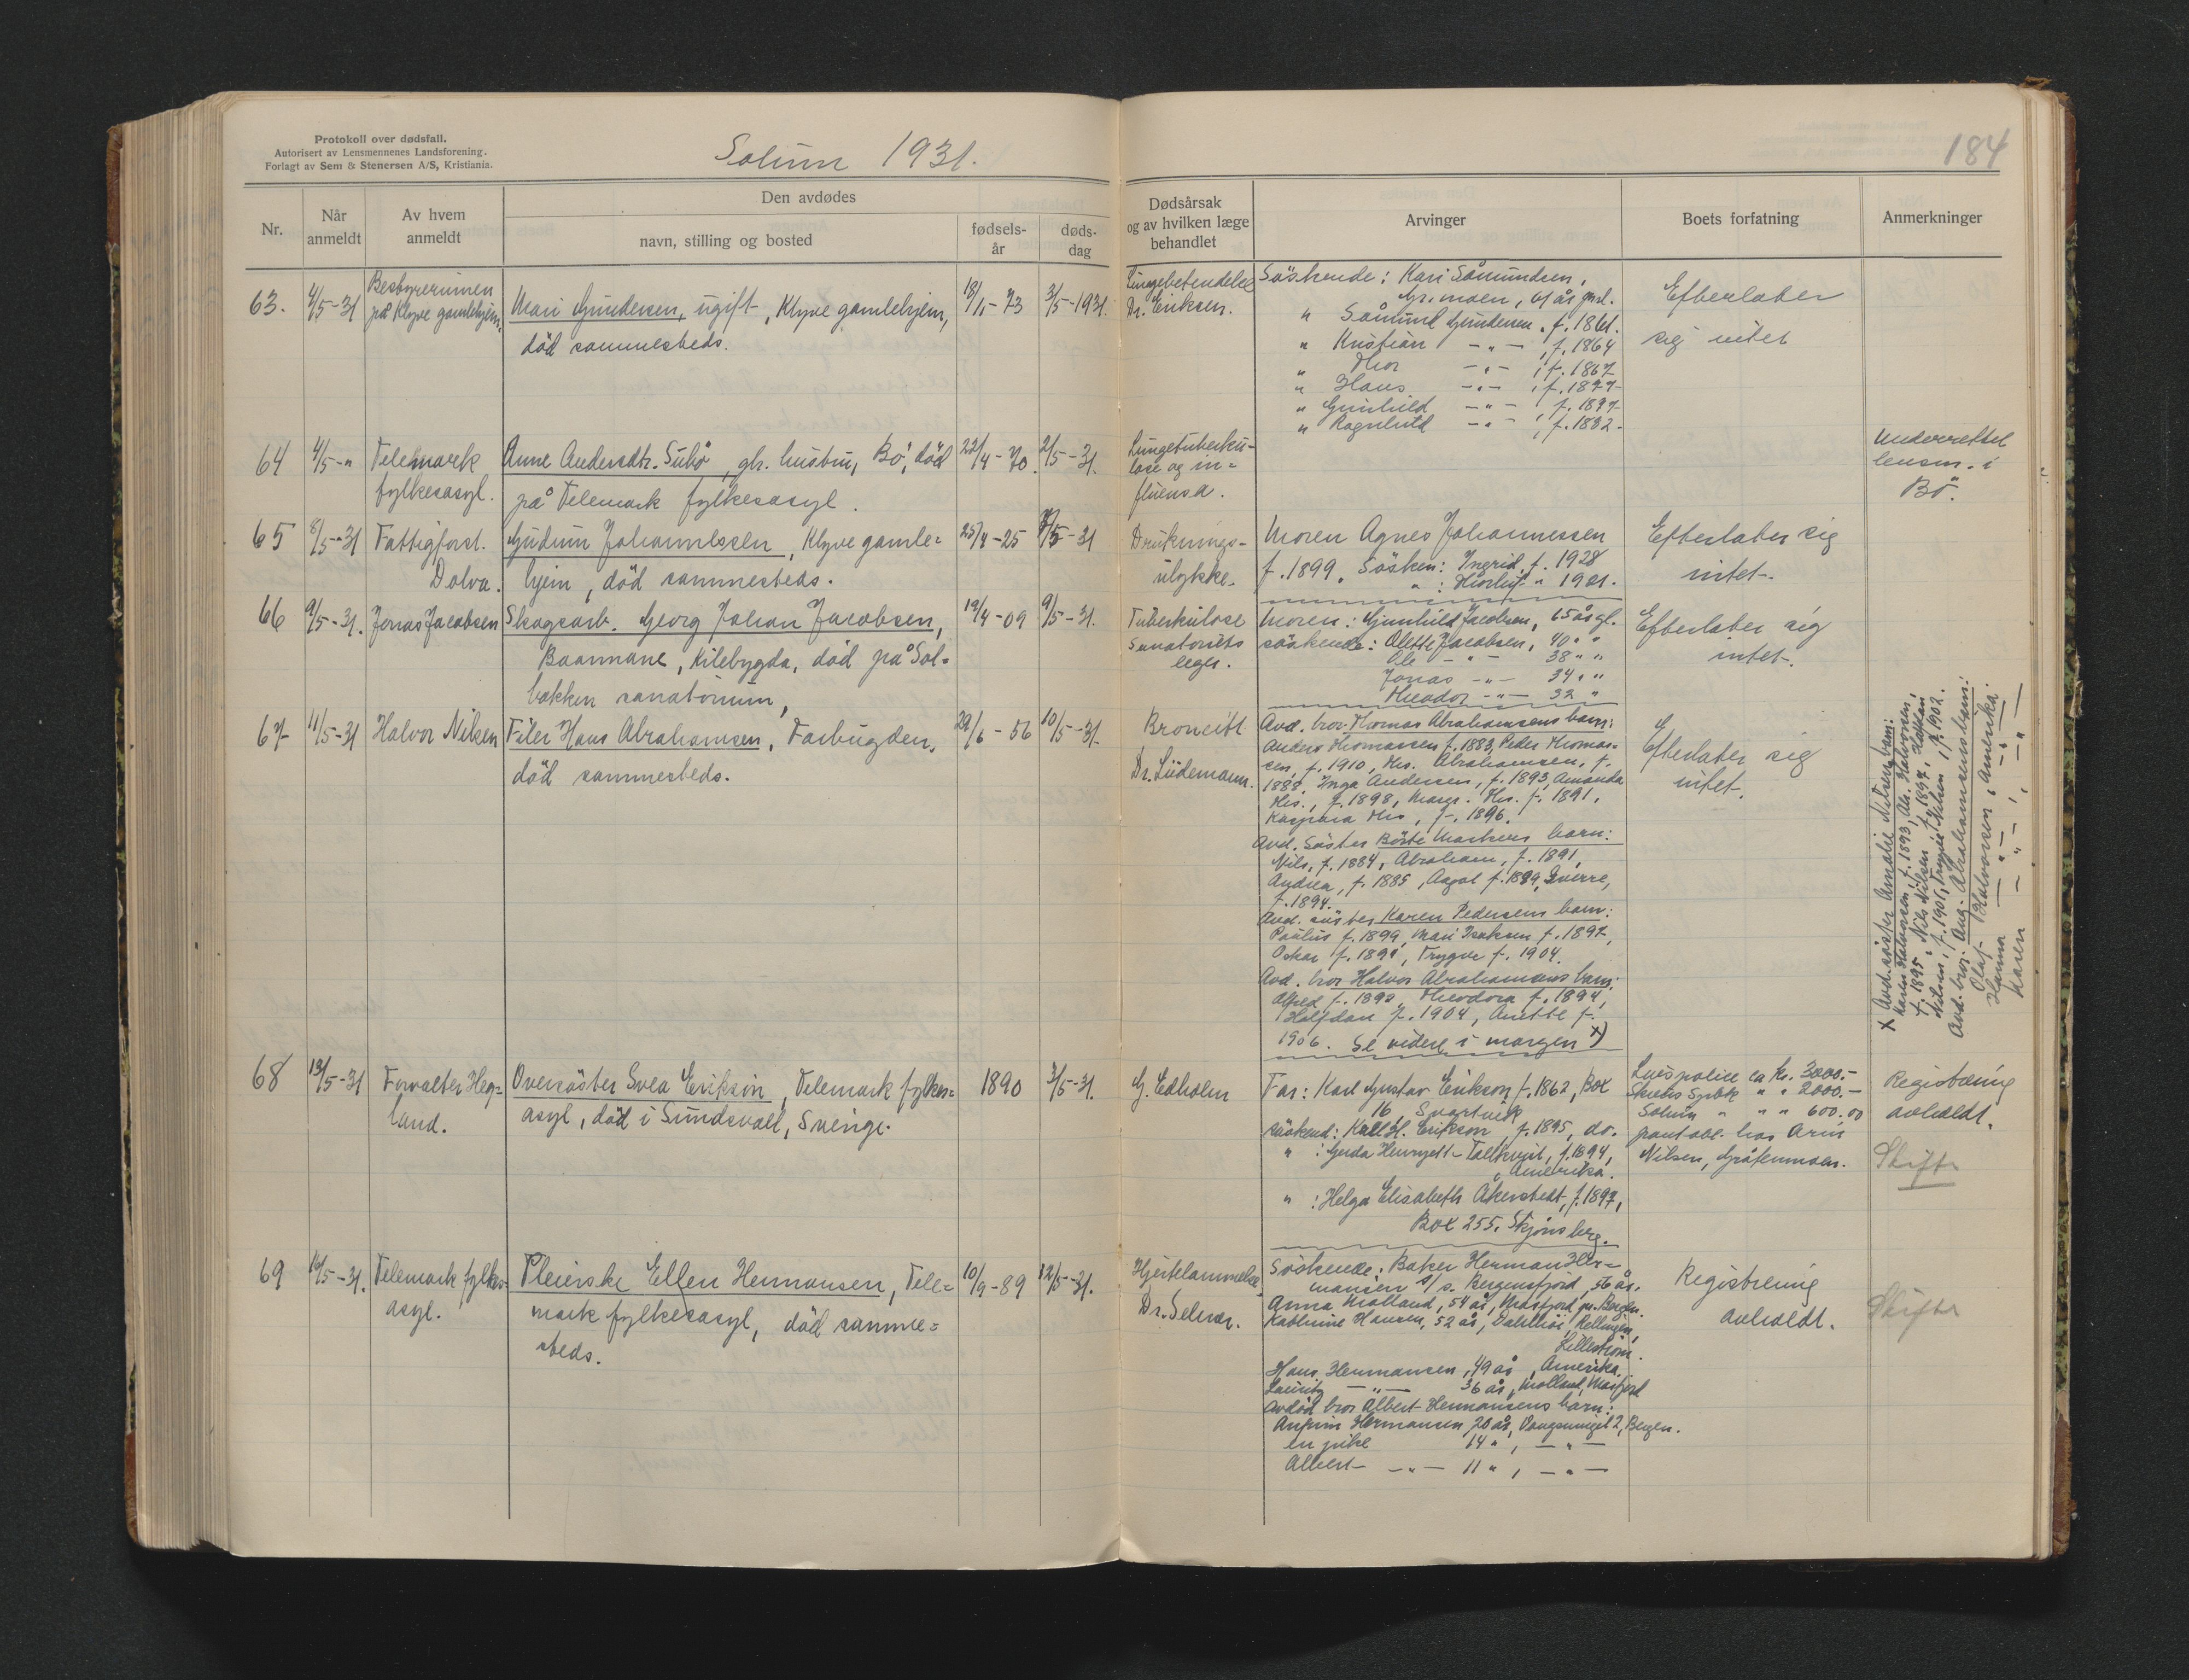 Protokoll over dødsfall.
Autorisert av Lensmennenes Landsforening.
Forlagt av Sem & Stenersen A/S, Kristiania.
Solum 1931.
184
Nr.
Når anmeldt
Av hvem anmeldt
Den avdødes
navn, stilling og bosted
fødselsår
dødsdag
Dødsårsak
og av hvilken læge
behandlet
Arvinger
Boets forfatning
Anmerkninger
63. 4/5-31 Bestyrerinnen på Klyve gamlehjem.
Mari Gundersen, ugift, Klyve gamlehjem,
död sammesteds.
18/1-73 3/5-1931.
Lungebetendelse
Dr. Eriksen.
Söskende: Kari Såmundsen,
Gr.moen,
" Såmund Gundersen, f. 1861.
" Kristian -"- , f. 1864
" Thor -"- , f. 1867
" Hans -"- , f. 1877
" Gunhild -"- , f. 1877
" Ragnhild -"- , f. 1882
Efterlater
sig intet
64 4/5-" Telemark
fylkesasyl.
Anne Andersdtr. Subö, gh. hustru, Bö, död
på Telemark fylkesasyl.
22/4-70. 2/5-31.
Lungetuberku-
lose og in=
fluensa.
Underrettet
lensm. i
Bö.
65 8/5-31 Fattigforst.
Dolva.
Gudrun Johannessen, Klyve gamle=
hjem, död sammesteds.
25/4-25 7/5-31
Druknings-
ulykke.
Moren Agnes Johannessen
f. 1899, Sösken: Ingrid, f. 1928
" : Thorleif " 1921.
Efterlater sig
intet.
66 9/5-31. Jonas Jacobsen
Skogsarb. Georg Johan Jacobsen,
Baannane, Kilebygda, död på Sol=
bakken sanatorium,
19/4-09 9/5-31.
Tuberkulose
Sanatoriets
leger.
Moren: Gunhild Jacobsen, 65 år gl.
söskende: Olette Jacobsen, 40 " "
Ole -"- 38 " "
Jonas -"- 34 " "
Theodor -"- 32 "
Efterlater sig
intet.
67 11/5-31 Halvor Nilsen
Filer Hans Abrahamsen, Farbugden,
död sammesteds.
29/6-56 10/5-31.
Broncitt
Dr. Lüdemann.
Avd. bror Thomas Abrahamsens barn:
Anders Thomassen f. 1883, Peder Thomas-
sen, f. 1910, Ths. Abrahamsen, f.
1888, Inga Andersen, f. 1893, Amanda
Ths., f. 1898, Marg. Ths. f. 1891,
Kaspara Ths, f. 1896.
Avd. Söster Börte Markers barn:
Nils, f. 1884, Abraham, f. 1891,
Andrea, f. 1885, Aagot f. 1889, Sverre,
f. 1894.
Avd. söster Karen Pedersens barn:
Paulus f. 1899, Mari Isaksen f. 1897,
Oskar f. 1891, Trygve f. 1904.
Avd. bror Halvor Abrahamsens barn:
Alfred f. 1892, Theodora f. 1894,
Halfdan f. 1904, Anette f.
1906. Se videre i margen x)
Efterlater sig
intet.
x Avd. söster Amalie Nilsens barn:
Karen Halvorsen, f. 1893, Als. Halvorsen,
f. 1895, Nils Nilsen f. 1897, Halfdan
Nilsen, f. 1901, Trygve Nilsen, f. 1902.
Avd. bror Aug. Abrahamsens barn:
Olaf Halvorsen, Amerika.
Hanna -"- , -"-
Karen -"- , -"-
68 13/5-31 Forvalter Heg-
land.
Oversöster Svea Erikson, Telemark fylkes=
asyl, död i Sundsvall, Sverige.
1890 3/5-31.
G. Edholm
Far: Karl Gustav Erikson f. 1862, Box
16, Svartvik
söskend: Kall H. Erikson, f. 1895, do.
" : Gerda Henryett Tallkvist, f. 1894,
Amerika.
" : Helga Elisabeth Åkerstedt, f. 1897,
Box 255, Skjönsberg.
Livspolice ca kr. 3000.-
Skiens Spbk " " 2000.-
Solum " " " 600.00
pantobl. hos Arne
Nilsen, Gråtenmoen.
Registrering
avholdt.
Skifte
69 16/5-31. Telemark fylkes-
asyl.
Pleierske Ellen Hermansen, Tele=
mark fylkesasyl, död samme=
steds.
10/9-89 12/5-31.
Hjertelammelse
Dr. Selmer.
Söskende: Baker Herman Her=
mansen s/s. Bergensfjord, 56 år.
Anna Molland, 54 år, Masfjord pr. Bergen.
Kathrine Hansen, 52 år,
Lilleström.
Hans Hermansen, 49 år, Amerika.
Lauritz -"- 36 år, Molland, Masfjord
Avdöd bror Albert Hermansens barn:
Hermansen 20 år, 2, Bergen.
en pike 14 ", -"-
Albert -"- 11 ", -"-
Registrering
avholdt.
Skifte